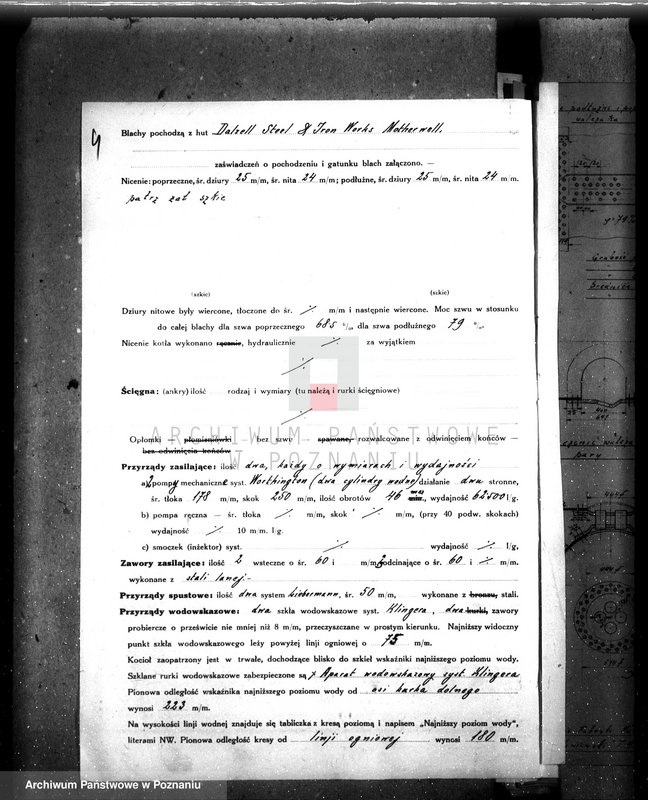 9
Blachy pochodzą z hut Dalzell Steel & Iron Works Motherwell.
zaświadczeń o pochodzeniu i gatunku blach załączono. —
Nicenie: poprzeczne, śr. dziury 25 m/m, śr. nita 24 m/m; podłużne, śr. dziury 25 m/m, śr. nita 24 m/m.
patrz zał szkic
(szkic) (szkic)
Dziury nitowe były wiercone, tłoczone do śr. ·/· m/m i następnie wiercone. Moc szwu w stosunku
do całej blachy dla szwa poprzecznego 68,5 % dla szwa podłużnego 79 %.
Nicenie kotła wykonano ręcznie, hydraulicznie ·/· za wyjątkiem
·/·
Ścięgna: (ankry) ilość rodzaj i wymiary (tu należą i rurki ścięgniowe)
·/·
ARCHIWUM PAŃSTWOWE
W POZNANIU
Opłomki — płomieniówki — bez szwu — spawane, rozwalcowane z odwinięciem końców —
bez odwinięcia końców
Przyrządy zasilające: ilość dwa, każdy o wymiarach i wydajności
a) 2 pompy mechaniczne syst. Worthington (dwa cylindry wodne) działanie dwu stronne,
śr. tłoka 178 m/m, skok 250 m/m, ilość obrotów 46 min., wydajność 62500 l/g.
b) pompa ręczna — śr. tłoka ·/· m/m, skok ·/· m/m, (przy 40 podw. skokach)
wydajność ·/· 10 m m. l/g.
c) smoczek (inżektor) syst. ·/· wydajność ·/· l/g,
Zawory zasilające: ilość 2 wsteczne o śr. 60 i m/m 2 odcinające o śr. 60 i ·/· m/m.
wykonane z stali lanej
Przyrządy spustowe: ilość dwa system śr. 50 m/m, wykonane z bronzu, stali.
Przyrządy wodowskazowe: dwa szkła wodowskazowe syst. Klingera, dwa kurki, zawory
probiercze o prześwicie nie mniej niż 8 m/m, przeczyszczane w prostym kierunku. Najniższy widoczny
punkt szkła wodowskazowego leży powyżej linji ogniowej o 75 m/m.
Kocioł zaopatrzony jest w trwałe, dochodzące blisko do szkieł wskaźniki najniższego poziomu wody.
Szklane rurki wodowskazowe zabezpieczone są Aparat wodowskazowy syst. Klingera
Pionowa odległość wskaźnika najniższego poziomu wody od osi karka dolnego
wynosi 223 m/m.
Na wysokości linji wodnej znajduje się tabliczka z kresą poziomą i napisem „Najniższy poziom wody”,
literami NW. Pionowa odległość kresy od linji ogniowej wynosi 180 m/m.
Archiwum Państwowe w Poznaniu